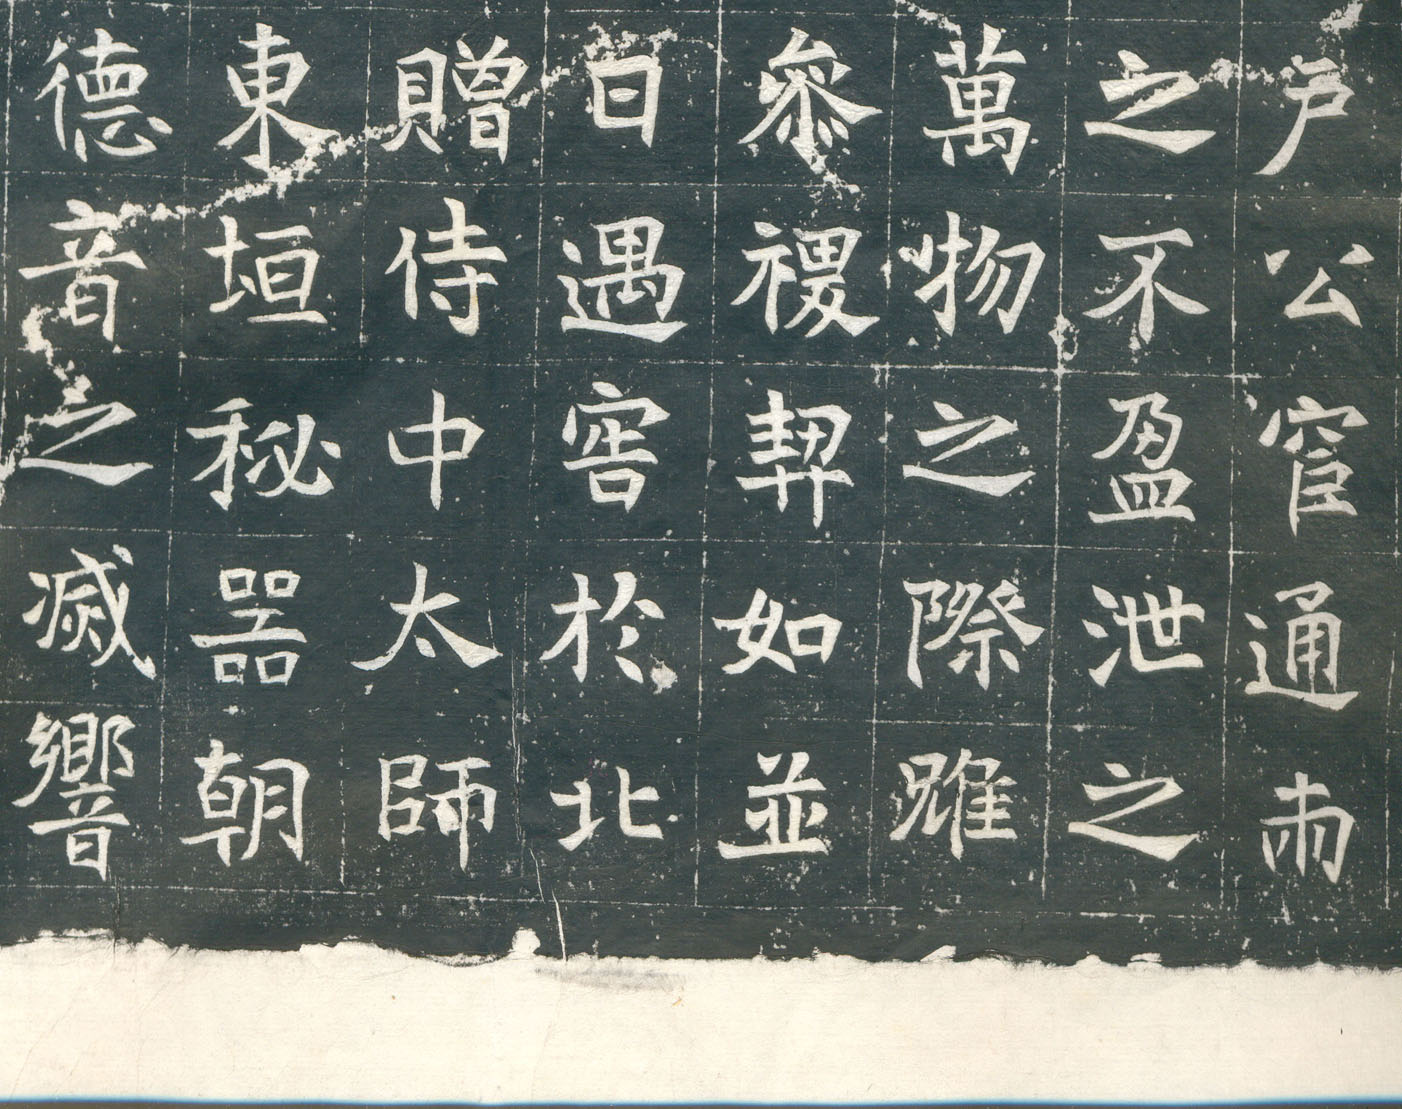 户公宦通
之不盈泄之
萬物之際雖
參禝契如並
日遇害於北
贈侍中太師
東垣秘器朝
德音之滅響